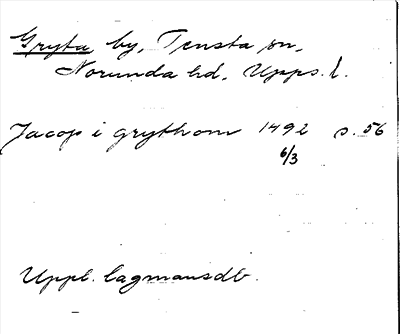 Gryta by, Tensta sn,
Norunda hd, Upps. l.
Jacop i grythom 1492 s. 56
6/3
Uppl. lagmansdb.